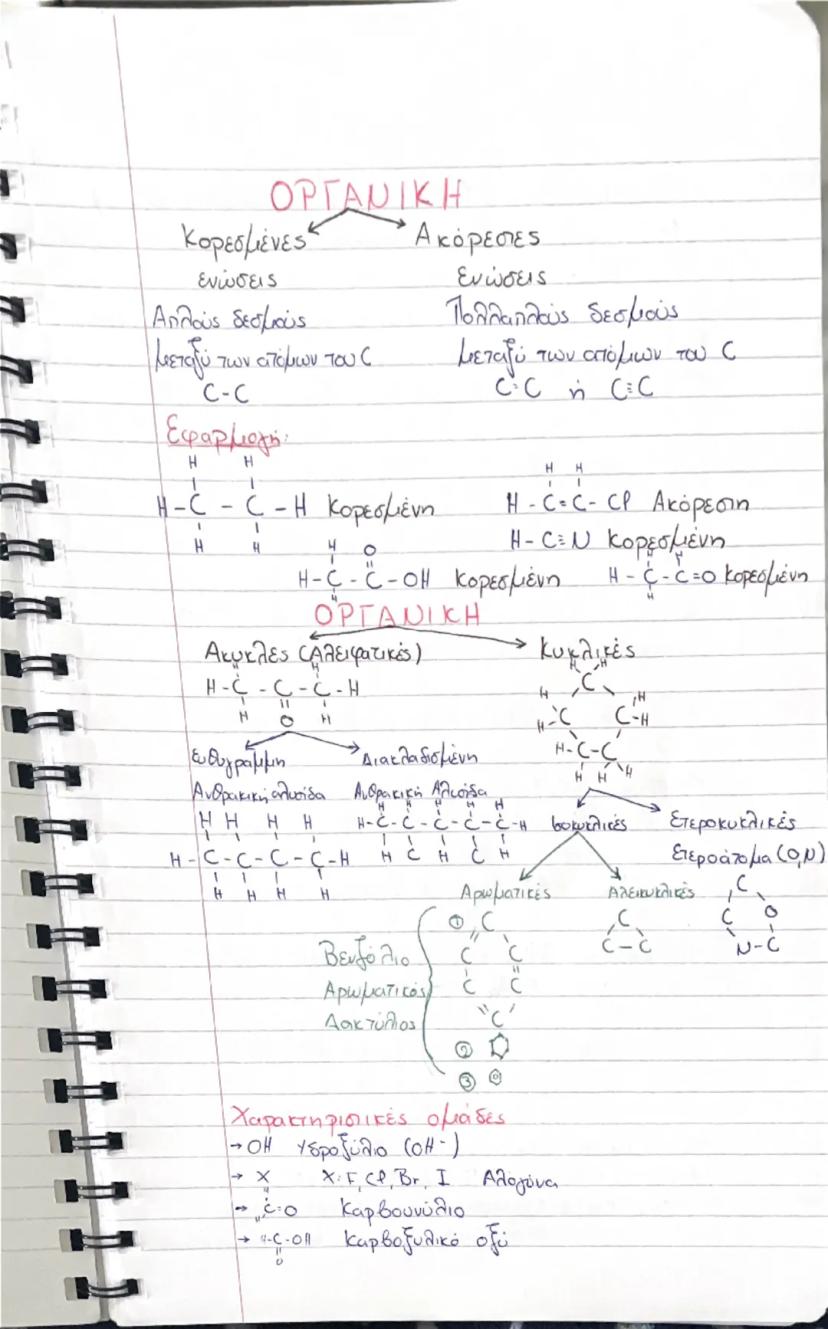 ΟΡΓΑΝΙΚΗ
Κορεσμένες Ακόρεστες
ενώσεις Ενώσεις
Απλούς δεσμούς Πολλαπλούς δεσμούς
μεταξύ των ατόμων του C μεταξύ των ατόμων του C
C-C C=C ή C≡C
Εφαρμογή:
H H H H
H-C - C -H Κορεσμένη H - C=C- Cl Ακόρεστη
H H H-C≡N Κορεσμένη
H O H
H-C - C -OH Κορεσμένη H - C - C=O Κορεσμένη
H H
ΟΡΓΑΝΙΚΗ
Ακυκλες (Αλειφατικές) Κυκλικές
H H H H
H-C - C - C-H C
H O H H H
H-C C-H
H-C-C
H H H
Ευθυγραμμη Διακλαδισμένη
Ανθρακική αλυσίδα Ανθρακική Αλυσίδα
H H H H H H H H H
H-C-C-C-C-H H-C-C-C-C-C-H
H H H H H C H C H
Ισοκυκλικές Ετεροκυκλικές
Ετεροάτομα (O,N)
Αρωματικές Αλεικυκλικές
C
C O
N-C
C
C-C
① C
C C
C C
C
Βενζόλιο
Αρωματικός
Δακτύλιος
②
③
Χαρακτηριστικές ομάδες
→ OH Υδροξύλιο (OH-)
→ X X: F, Cl, Br, I Αλογόνα
→ C=O Καρβουνύλιο
→ -C-OH Καρβοξυλικό οξύ
O